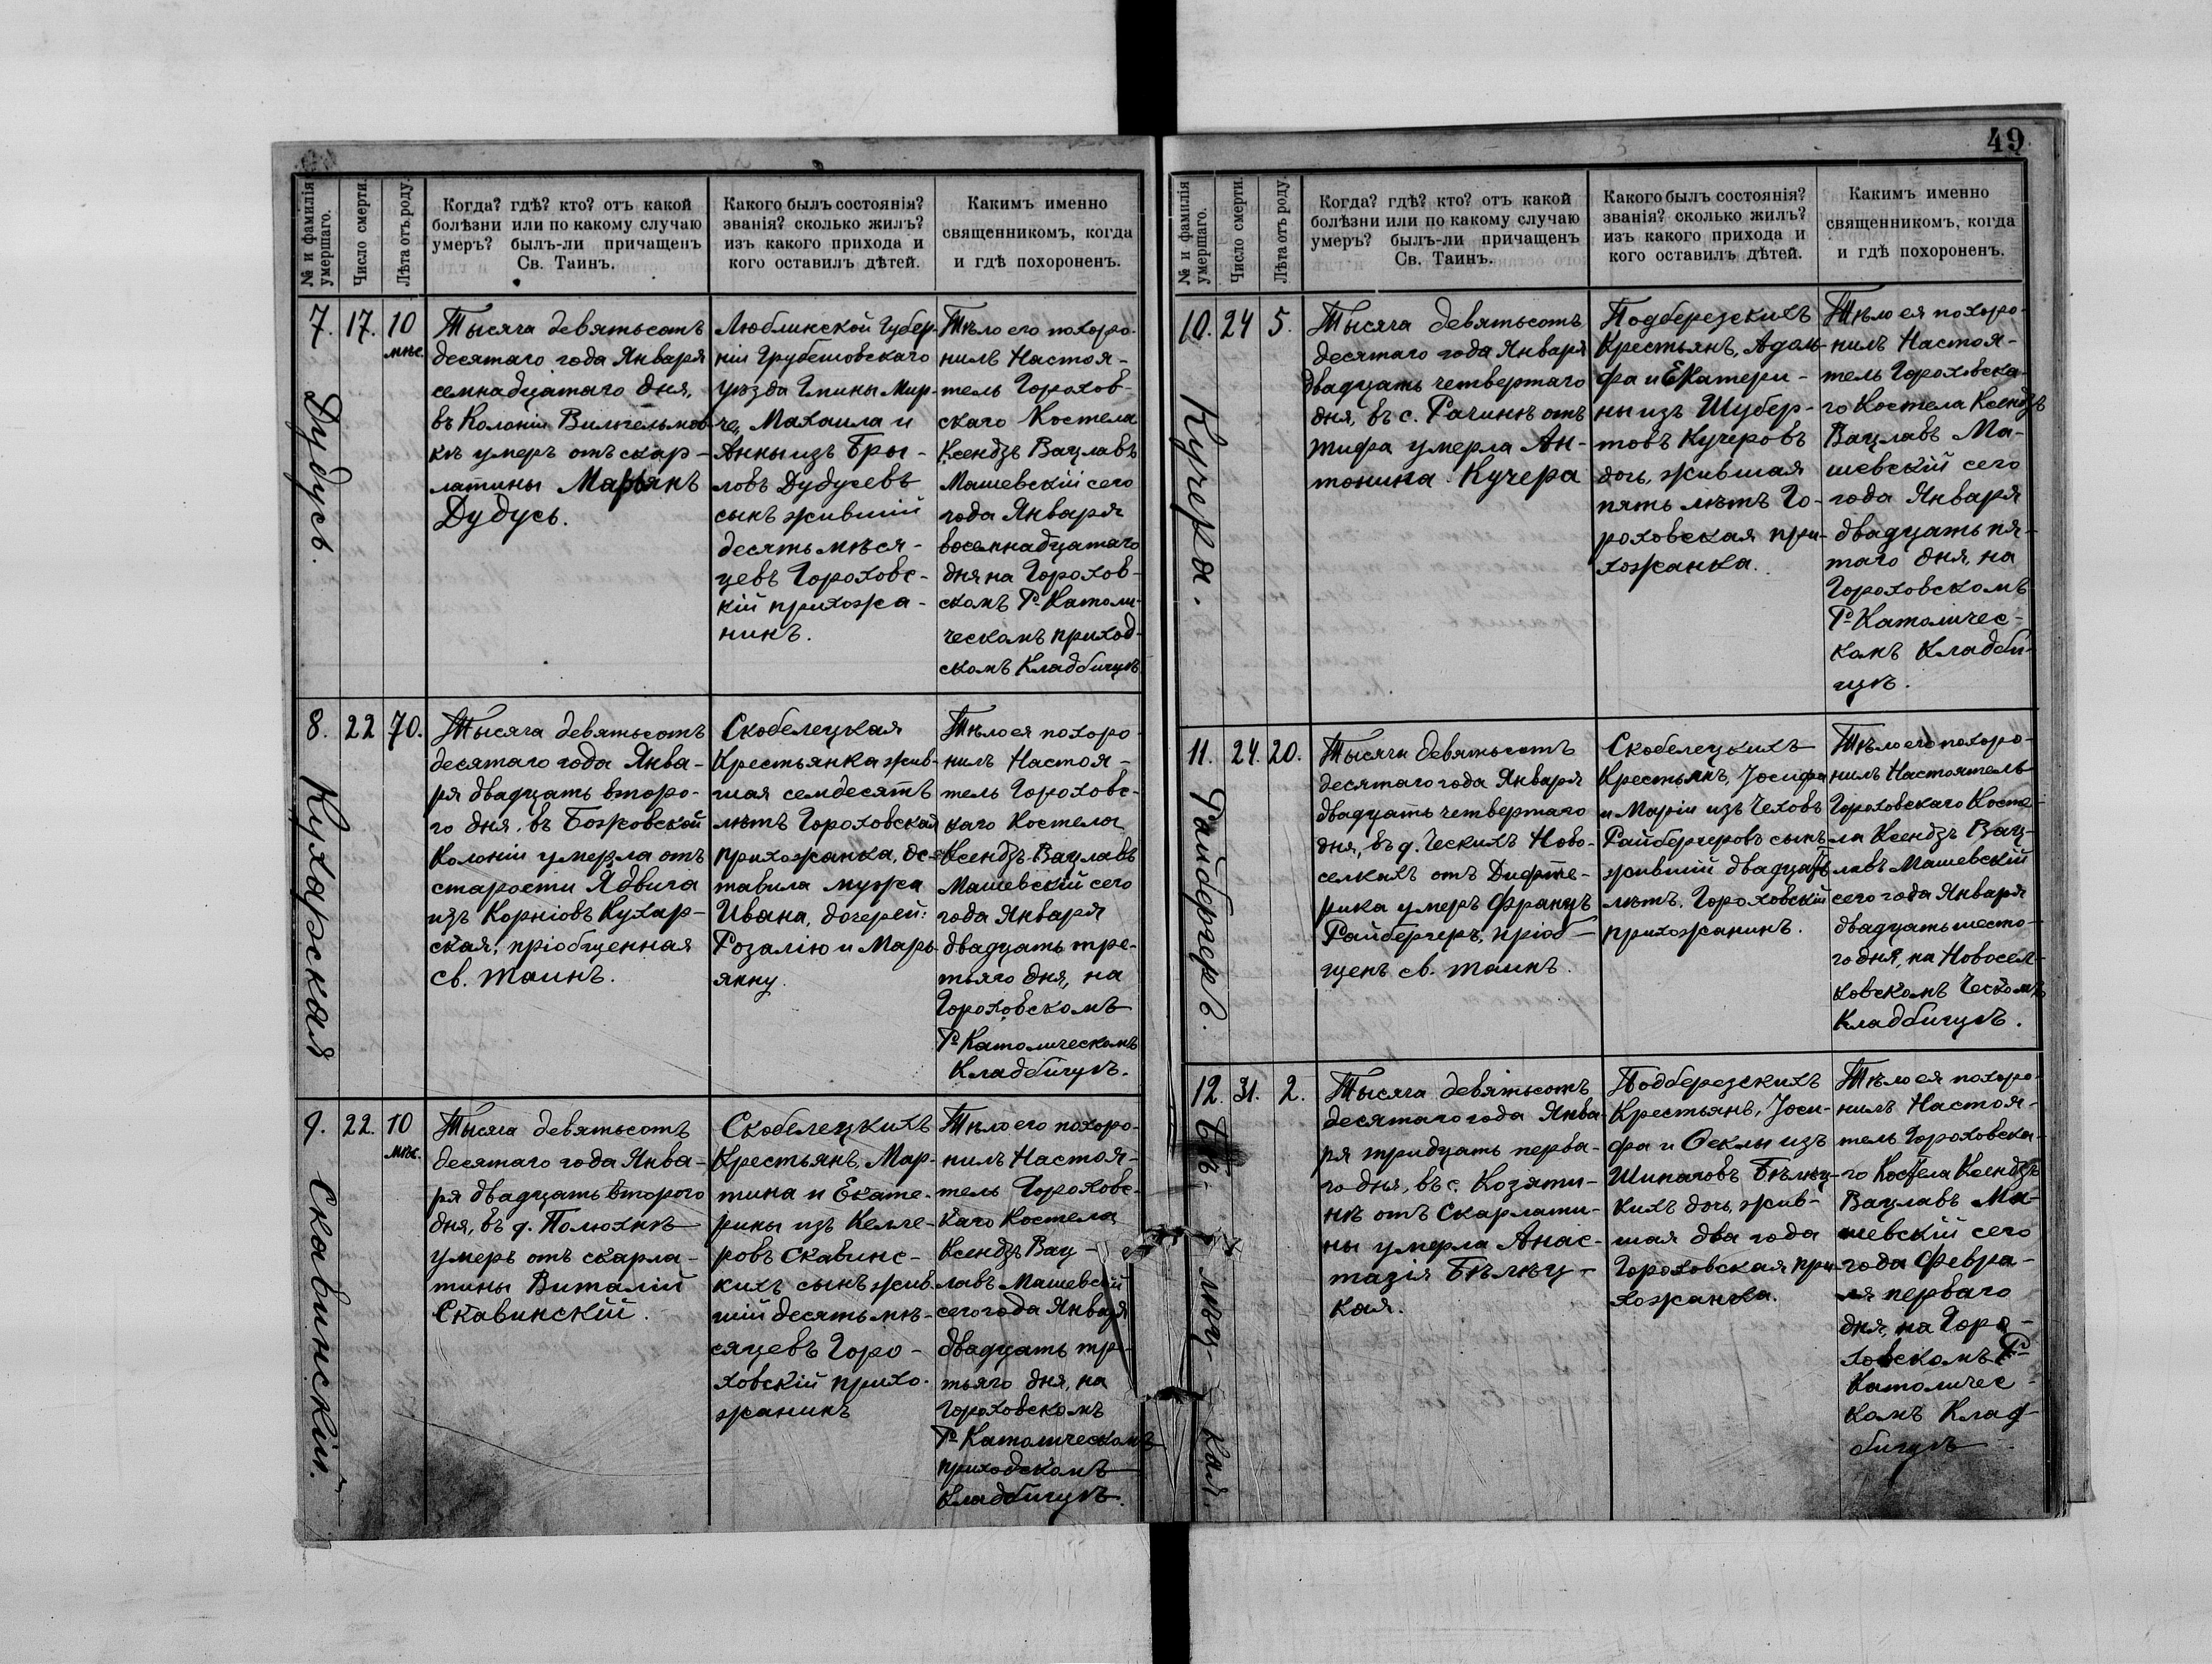 49
№ и фамилія
умершаго.
Число смерти.
Лѣта отъ роду.
Когда? гдѣ? кто? отъ какой
болѣзни или по какому случаю
умеръ? былъ-ли причащенъ
Св. Таинъ.
Какого былъ состоянія?
званія? сколько жилъ?
изъ какого прихода и
кого оставилъ дѣтей.
Какимъ именно
священникомъ, когда
и гдѣ похороненъ.
7.
Дудусь.
17.
10
мѣс.
Тысяча девятьсотъ
десятаго года Января
семнадцатаго дня,
въ Колоніи Вильгельмов-
кѣ умеръ отъ скар-
латины Марьянъ
Дудусь.
Люблинской Губер-
ніи Грубешовскаго
уѣзда Гмины Мир-
че, Михаила и
Анны изъ Бры-
ловъ Дудусевъ
сынъ жившій
десять мѣся-
цевъ Гороховс-
кій прихожа-
нинъ.
Тѣло его похоро-
нилъ Настоя-
тель Горохов-
скаго Костела
Ксендзъ Вацлавъ
Машевскій сего
года Января
восемнадцатаго
дня на Горохов-
скомъ Р-Католи-
ческомъ приход-
скомъ Кладбищѣ
8.
Кухарская
22
70.
Тысяча девятьсотъ
десятаго года Янва-
ря двадцать второ-
го дня, въ Божовской
Колоніи умерла отъ
старости Ядвига
изъ Корніовъ Кухар-
ская, пріобщенная
св. таинъ.
Скобелецкая
Крестьянка жив-
шая семдесятъ
лѣтъ Гороховская
прихожанка, ос-
тавила мужа
Ивана, дочерей:
Розалію и Марь-
янну.
Тѣло ея похоро-
нилъ Настоя-
тель Гороховс-
каго Костела
Ксендзъ Вацлавъ
Машевскій сего
года Января
двадцать тре-
тьяго дня, на
Гороховскомъ
Р-Католическомъ
Кладбищѣ.
9.
Скавинскій.
22.
10
мѣс.
Тысяча девятьсотъ
десятаго года Янва-
ря двадцать второго
дня, въ д. Полюхнѣ
умеръ отъ скарла-
тины Виталій
Скавинскій.
Скобелецкихъ
Крестьянъ, Мар-
тина и Екате-
рины изъ Келче-
ровъ Скавинс-
кихъ сынъ жив-
шій десять мѣ-
сяцевъ Горо-
ховскій прихо-
жанинъ
Тѣло его похоро-
нилъ Настоя-
тель Гороховс-
каго Костела
Ксендзъ Вац-
лавъ Машевскій
сего года Января
двадцать тр-
тьяго дня, на
Гороховскомъ
Р-Католическомъ
приходскомъ
Кладбищѣ.
№ и фамилія
умершаго.
Число смерти.
Лѣта отъ роду.
Когда? гдѣ? кто? отъ какой
болѣзни или по какому случаю
умеръ? былъ-ли причащенъ
Св. Таинъ.
Какого былъ состоянія?
званія? сколько жилъ?
изъ какого прихода и
кого оставилъ дѣтей.
Какимъ именно
священникомъ, когда
и гдѣ похороненъ.
10.
Кучера.
24
5.
Тысяча девятьсотъ
десятаго года Января
двадцать четвертаго
дня, въ с. Рачинѣ отъ
тифа умерла Ан-
тонина Кучера
Подберезскихъ
Крестьянъ, Адоль-
фа и Екатери-
ны изъ Шубер-
товъ Кучеровъ
дочь, жившая
пять лѣтъ Го-
роховская при-
хожанка.
Тѣло ея похоро-
нилъ Настоя-
тель Гороховска-
го Костела Ксендзъ
Вацлавъ Ма-
шевскій сего
года Января
двадцать пя-
таго дня, на
Гороховскомъ
Р-Католичес-
комъ Кладби-
щѣ.
11.
Райбергеръ.
24.
20.
Тысяча девятьсотъ
десятаго года Января
двадцать четвертаго
дня, въ д. Ческихъ Ново-
селкахъ отъ Дифте-
рика умеръ Францъ
Райбергеръ, пріоб-
щенъ св. таинъ.
Скобелецкихъ
Крестьянъ, Іосифа
и Маріи изъ Чеховъ
Райбергеровъ сынъ
жившій двадцать
лѣтъ, Гороховскій
прихожанинъ.
Тѣло его похоро-
нилъ Настоятель
Гороховскаго Косте-
ла Ксендзъ Вац-
лавъ Машевскій
сего года Января
двадцать шесто-
го дня, на Новосел-
ковскомъ Ческомъ
Кладбищѣ.
12.
Бѣ-лѣц-кая.
31.
2.
Тысяча девятьсотъ
десятаго года Янва-
ря тридцать перва-
го дня, въ с. Козяти-
нѣ отъ Скарлати-
ны умерла Анас-
тазія Бѣлѣц-
кая.
Подберезскихъ
Крестьянъ, Іоси-
фа и Ѳеклы изъ
Шипаговъ Бѣлѣц-
кихъ дочь, жив-
шая два года
Гороховская при-
хожанка.
Тѣло ея похоро-
нилъ Настоя-
тель Гороховска-
го Костела Ксендзъ
Вацлавъ Ма-
шевскій сего
года Февра-
ля перваго
дня, на Горо-
ховскомъ Р-
Католичес-
комъ Клад-
бищѣ